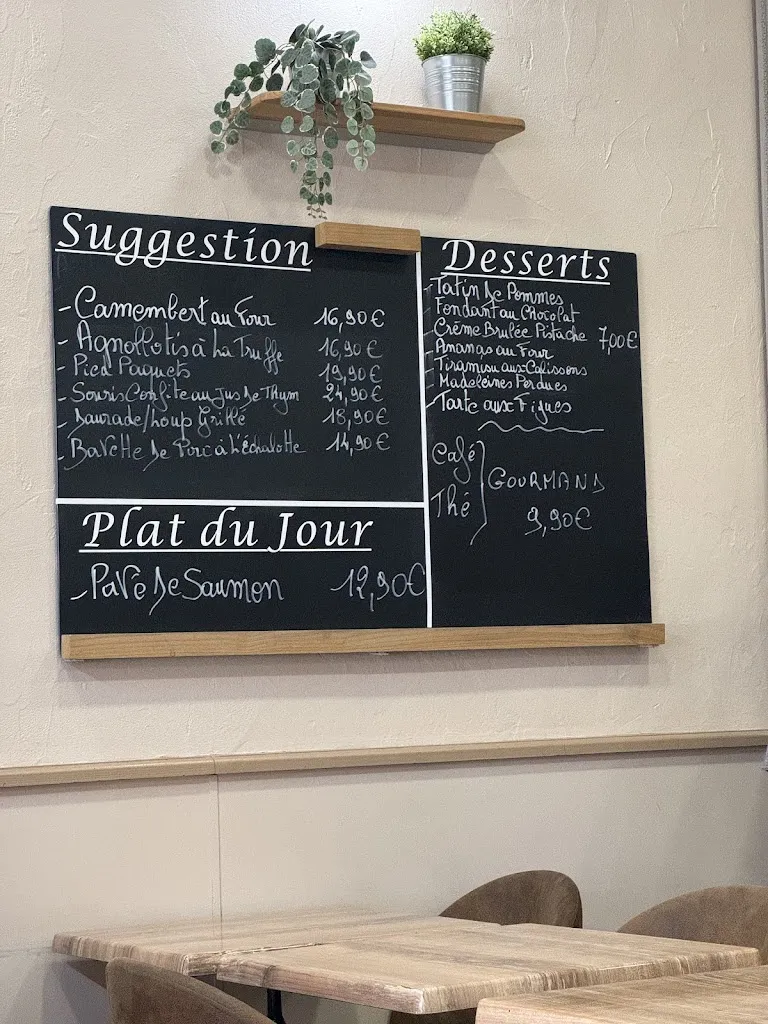 Suggestion
- Camembert au Four 16,90€
- Agnollotis à La Truffe 16,90€
- Pied Paquets 19,90€
- Souris Confite au Jus De Thym 24,90€
- Daurade/Loup Grillé 18,90€
- Bavette De Porc à L'échalotte 14,90€
Plat du Jour
- Pavé De Saumon 12,90€
Desserts
- Tatin De Pommes
- Fondant au Chocolat
- Crème Brulée Pistache 7,00€
- Ananas au Four
- Tiramisu aux Calissons
- Madeleines Perdues
- Tarte aux Figues
Café
Thé
GOURMAND
9,90€